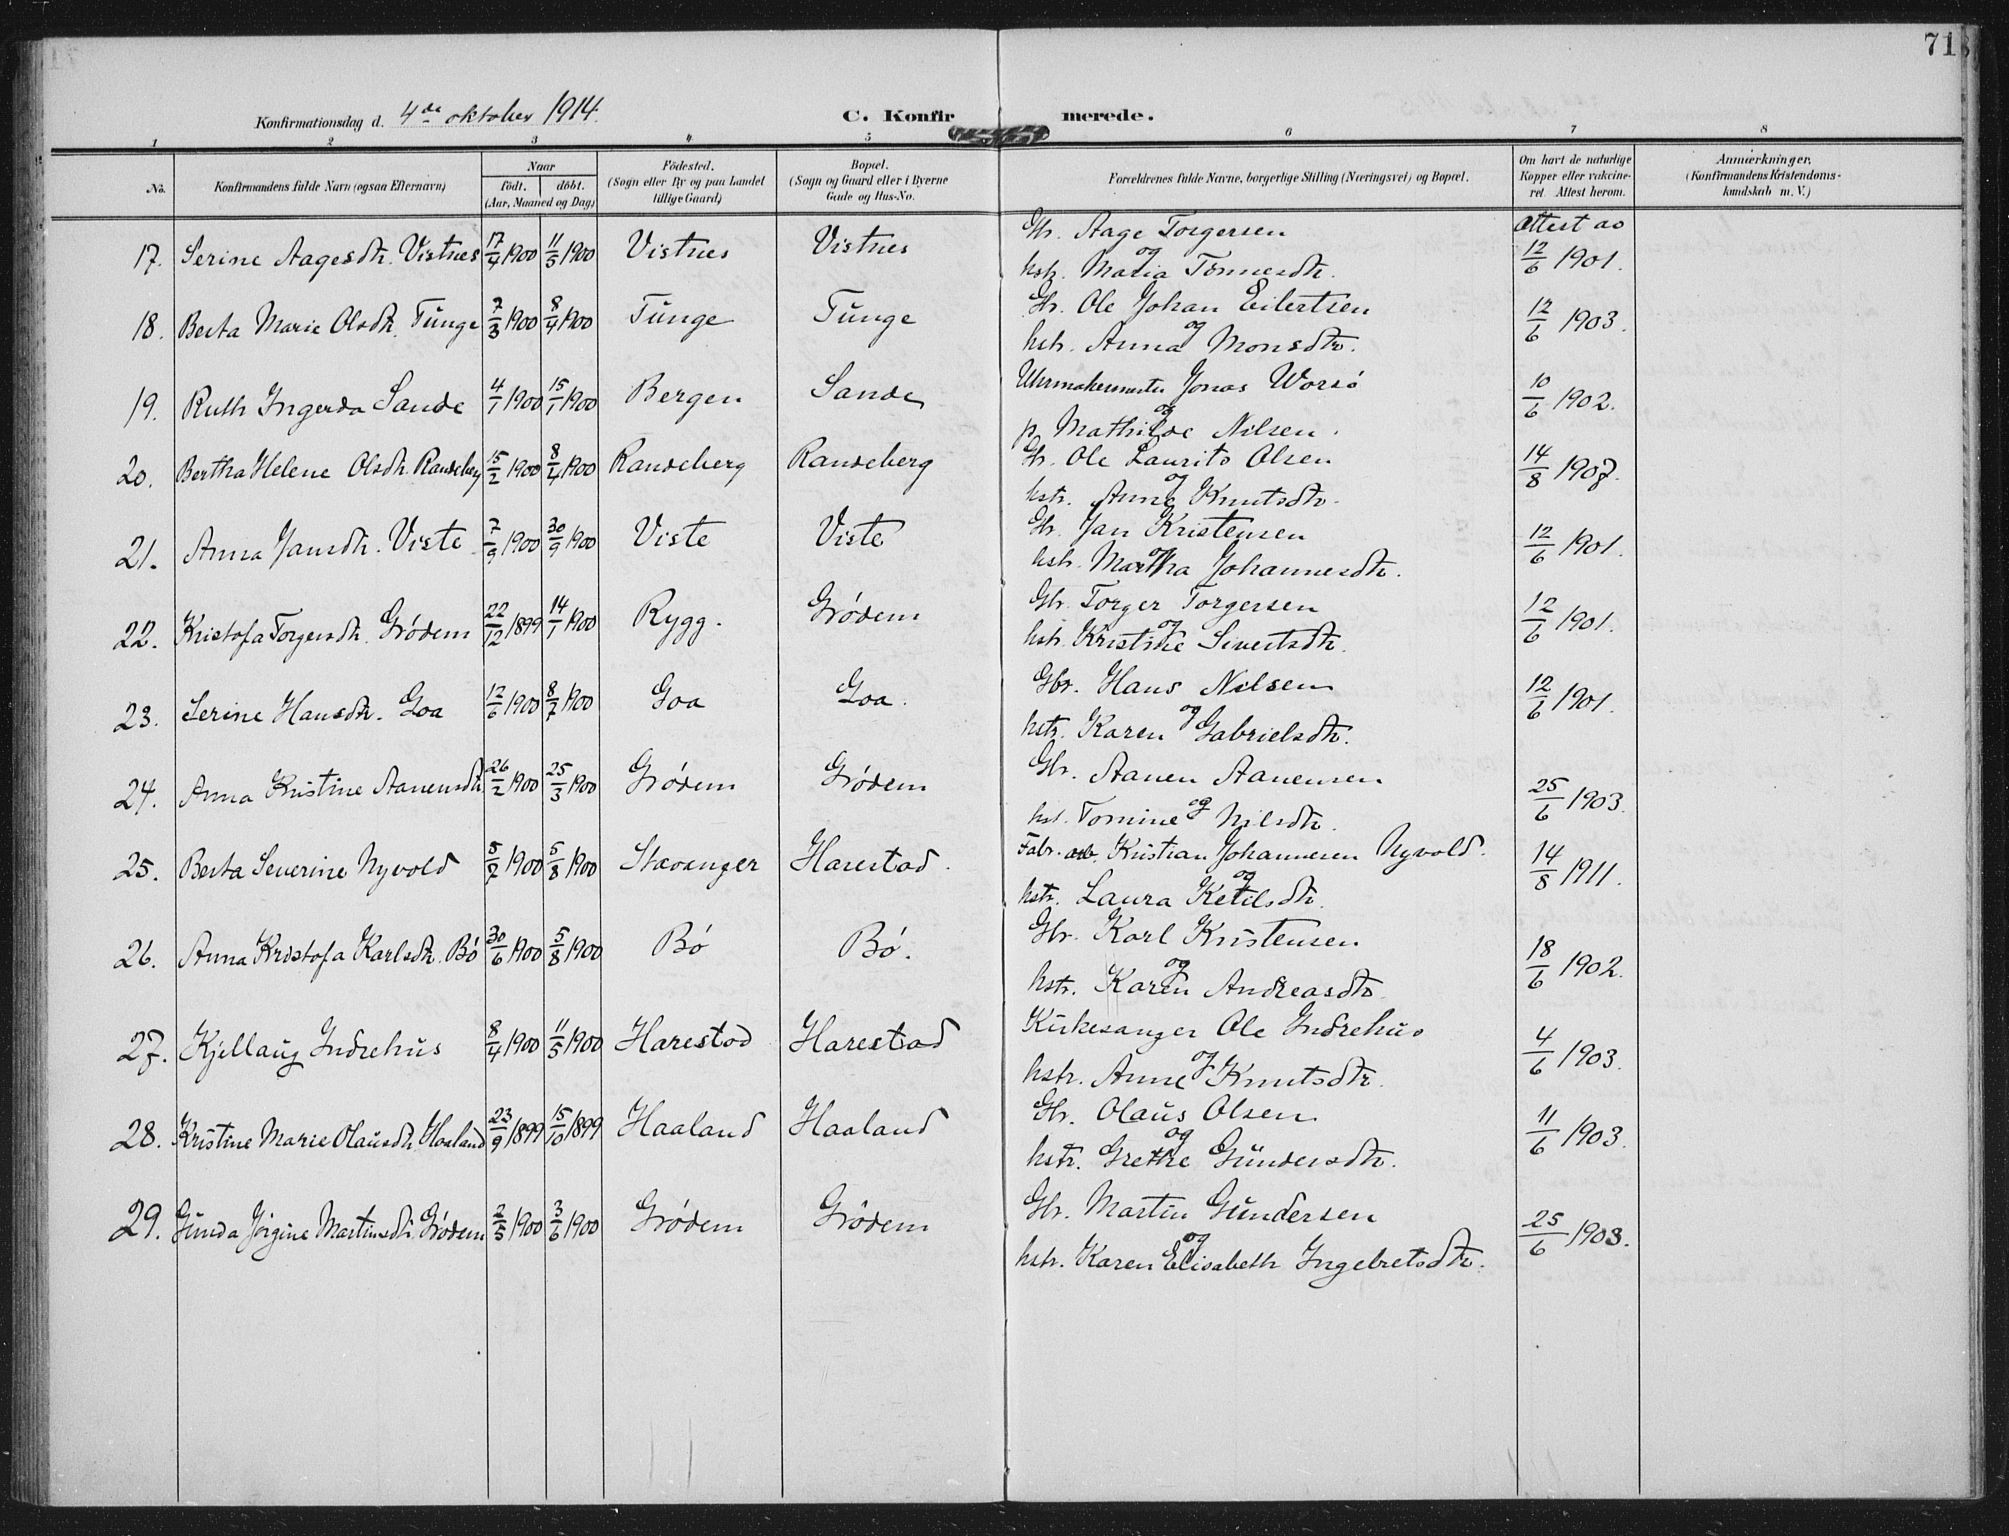 71
Konfirmationsdag d. 4de oktober 1914. C. Konfirmerede.
1 2 3 4 5 6 7 8
No. Konfirmandens fulde Navn (ogsaa Efternavn) Naar født. døbt. (Aar, Maaned og Dag) Fødested. (Sogn eller By og paa Landet tillige Gaard) Bopæl. (Sogn og Gaard eller i Byerne Gade og Hus-No. Forældrenes fulde Navne, borgerlige Stilling (Næringsvei) og Bopæl. Om havt de naturlige Kopper eller vakcineret. Attest herom. Anmærkninger, (Konfirmandens Kristendomskundskab m. V.)
17. Serine Aagesdtr. Vistnes 17/4 1900 11/5 1900 Vistnes Vistnes Gbr. Aage Torgersen og Attest av
hstr. Maria Tønnesdtr. 12/6 1901.
18. Berta Marie Olsdtr. Tunge 7/3 1900 8/4 1900 Tunge Tunge Gbr. Ole Johan Eilertsen og 12/6 1903.
hstr. Anna Monsdtr.
19. Ruth Ingerda Sande 4/1 1900 15/1 1900 Bergen Sande Uhrmakermester Jonas Worsø og 10/6 1902.
p. Mathilde Nilsen.
20. Bertha Helene Olsdtr. Randeberg 15/2 1900 8/4 1900 Randeberg Randeberg Gbr. Ole Laurits Olsen og 14/8 1907.
hstr. Anna Knutsdtr.
21. Anna Jansdtr. Viste 7/9 1900 30/9 1900 Viste Viste Gbr. Jan Kristensen og 12/6 1901.
hstr. Martha Johannesdtr.
22. Kristofa Torgersdtr. Grødem 22/12 1899 14/1 1900 Rygg. Grødem Gbr. Torger Torgersen og 12/6 1901.
hstr. Kristine Sivertsdtr.
23. Serine Hansdtr. Goa 12/6 1900 8/7 1900 Goa Goa. Gbr. Hans Nilsen og 12/6 1901.
hstr. Karen Gabrielsdtr.
24. Anna Kristine Aanensdtr. 26/2 1900 25/3 1900 Grødem Grødem Gbr. Aanen Aanensen og 25/6 1903.
hst. Tomine Nilsdtr.
25. Berta Severine Nyvold 5/7 1900 5/8 1900 Stavanger Harestad. Fabr. arb. Kristian Johannesen Nyvold. og 14/8 1911.
hstr. Laura Ketilsdtr.
26. Anna Kristofa Karlsdtr. Bø 30/6 1900 5/8 1900 Bø Bø. Gbr. Karl Kristensen og 18/6 1902.
hstr. Karen Andreasdtr.
27. Kjellaug Indrehus 8/4 1900 11/5 1900 Harestad Harestad Kirkesanger Ole Indrehus og 4/6 1903.
hstr. Anne Knutsdtr.
28. Kristine Marie Olausdtr. Haaland 23/9 1899 15/10 1899 Haaland Haaland Gbr. Olaus Olsen og 11/6 1903.
hstr. Grethe Gundersdtr.
29. Gunda Jørgine Martinsdtr. Grødem 2/5 1900 3/6 1900 Grødem Grødem Gbr. Martin Gundersen og 25/6 1903.
hstr. Karen Elisabeth Ingebretsdtr.